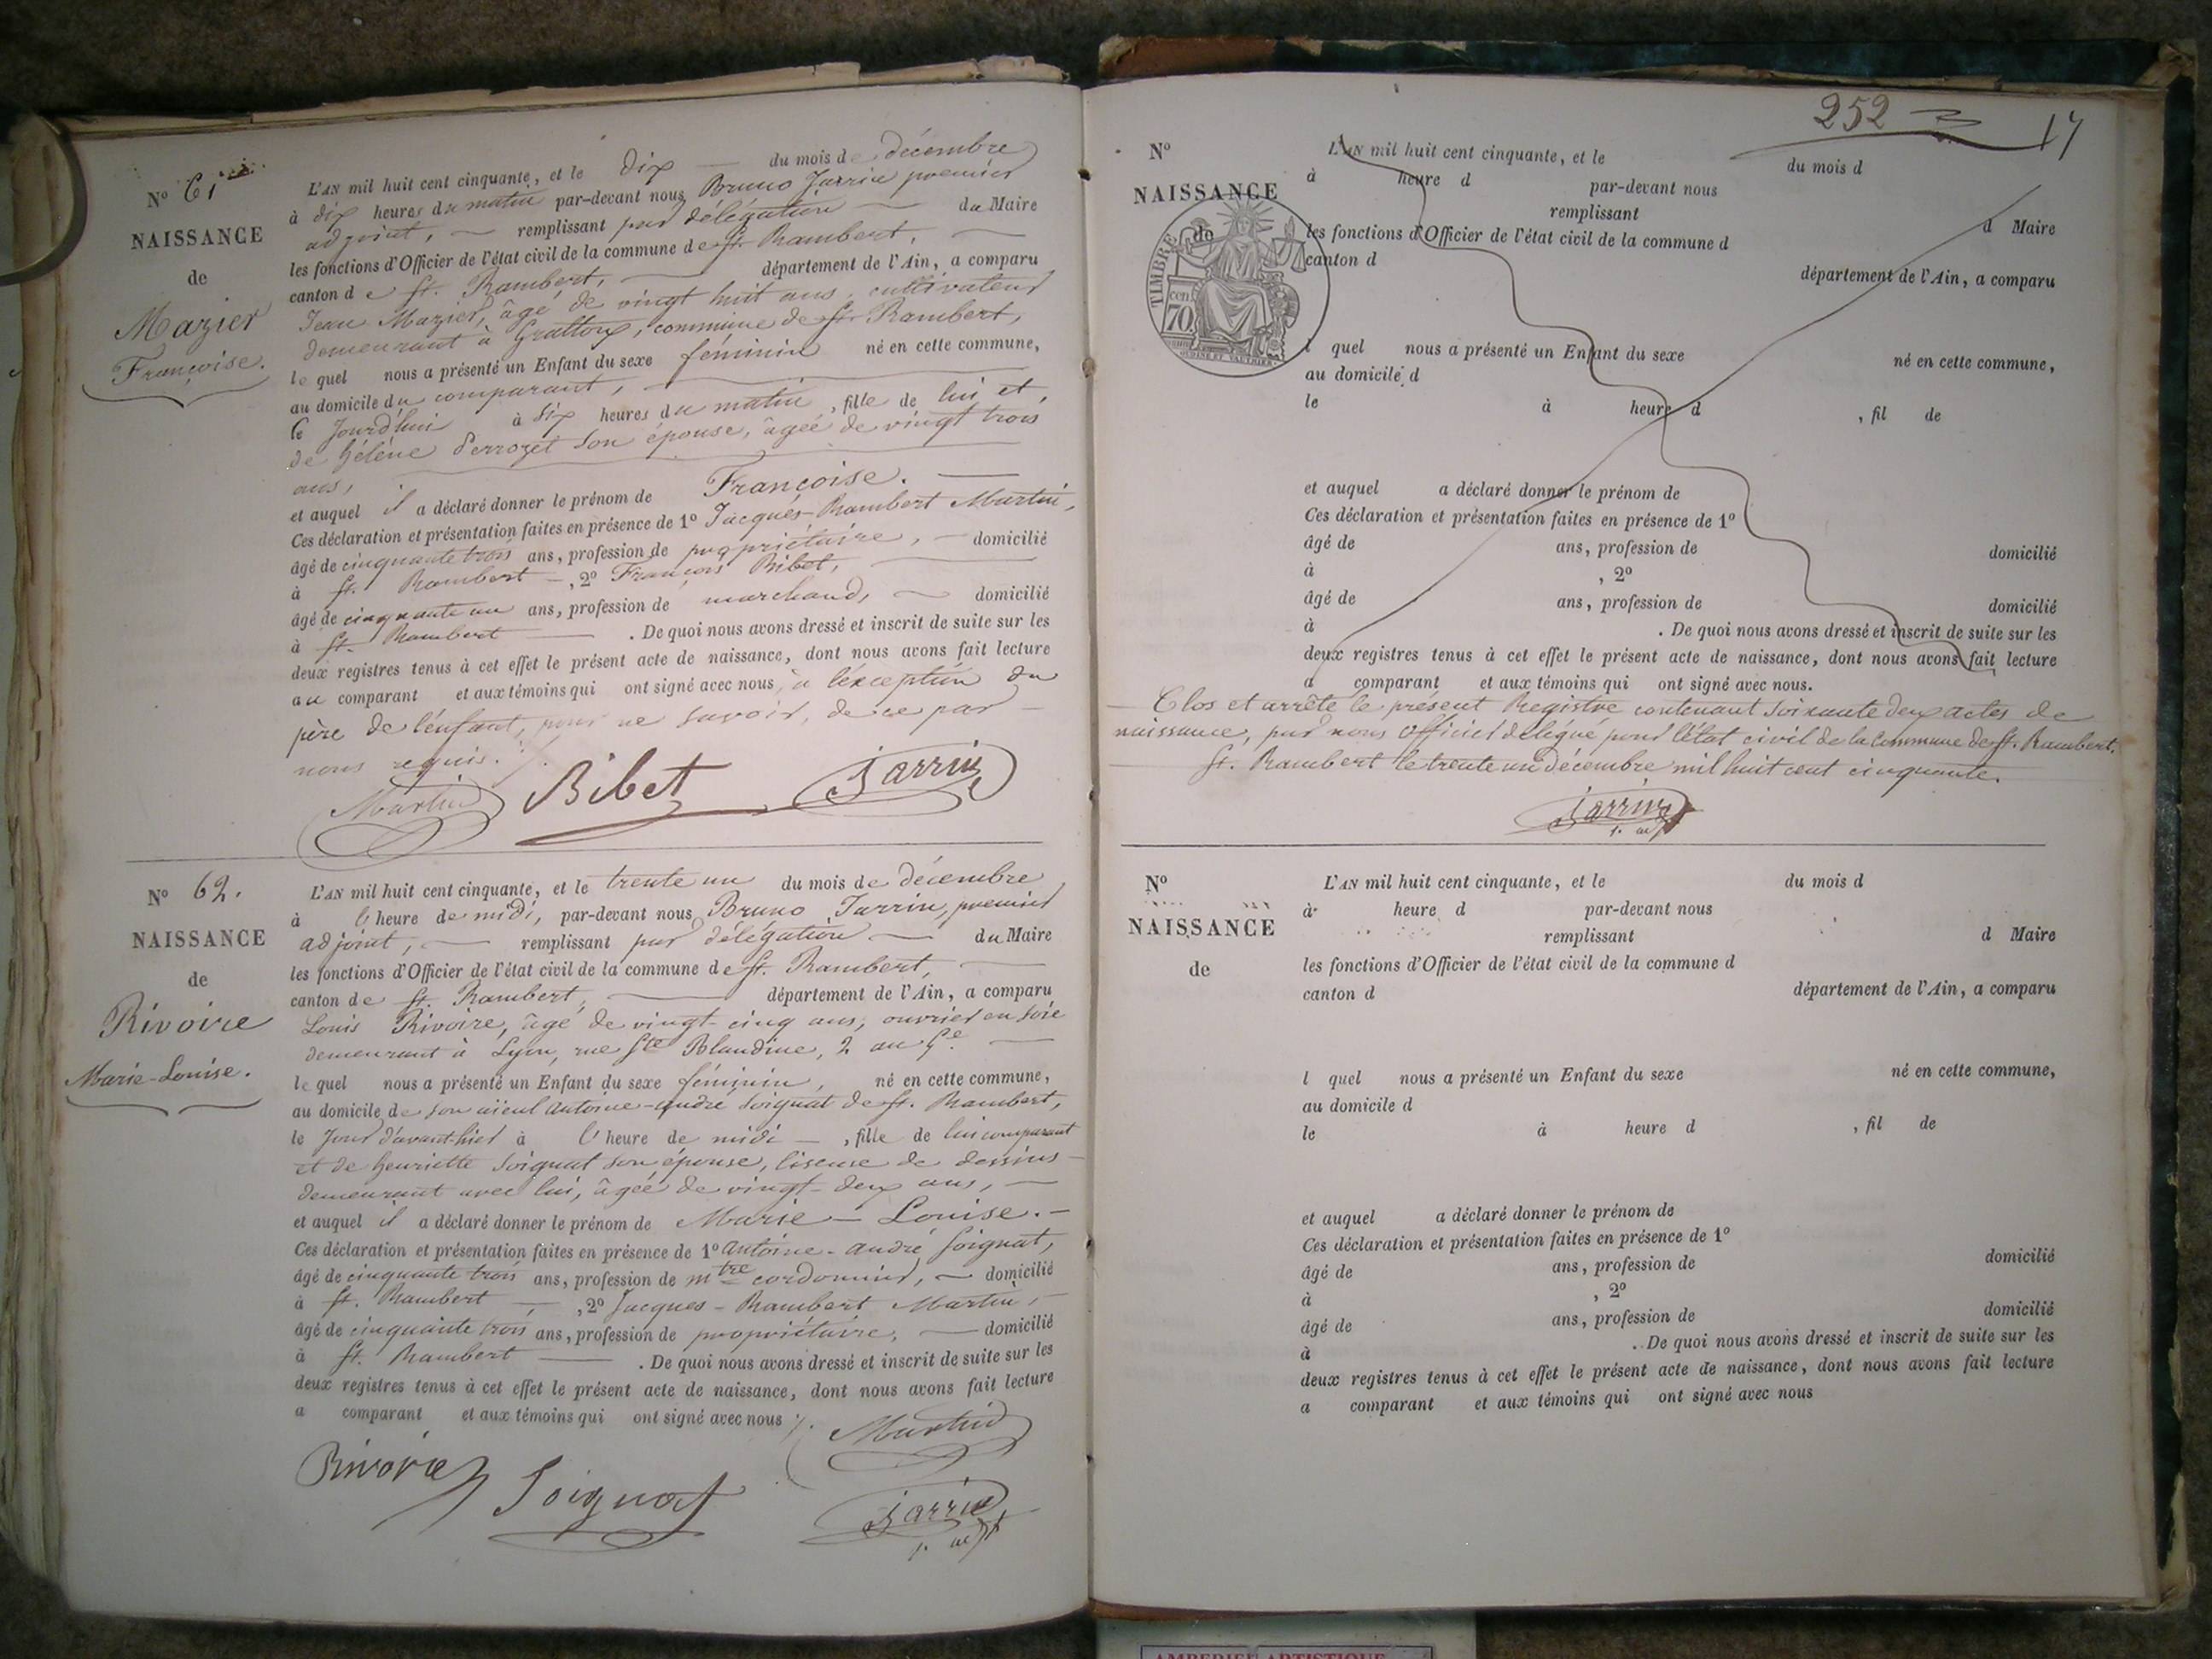 N° 61
NAISSANCE
de
Mazier
Françoise.
L'AN mil huit cent cinquante, et le dix du mois de décembre
à dix heures du matin par-devant nous Bruno Jarrin premier
adjoint, remplissant par délégation du Maire
les fonctions d'Officier de l'état civil de la commune de St. Rambert,
canton de St. Rambert, département de l'Ain, a comparu
Jean Mazier, âgé de vingt huit ans, cultivateur
demeurant à Grattoux, commune de St. Rambert,
lequel nous a présenté un Enfant du sexe féminin né en cette commune,
au domicile du comparant,
le jourd'hui à six heures du matin, fille de lui et,
de Hélène Perrozet son épouse, âgée de vingt trois
ans,
et auquel il a déclaré donner le prénom de Françoise.
Ces déclaration et présentation faites en présence de 1° Jacques-Rambert Martin,
âgé de cinquante trois ans, profession de propriétaire, domicilié
à St. Rambert, 2° François Bibet,
âgé de cinquante un ans, profession de marchand, domicilié
à St. Rambert. De quoi nous avons dressé et inscrit de suite sur les
deux registres tenus à cet effet le présent acte de naissance, dont nous avons fait lecture
au comparant et aux témoins qui ont signé avec nous, à l'exception du
père de l'enfant, pour ne savoir, de ce par
nous requis.
Martin Bibet Jarrin
N° 62.
NAISSANCE
de
Rivoire
Marie-Louise.
L'AN mil huit cent cinquante, et le trente un du mois de décembre
à l'heure de midi, par-devant nous Bruno Jarrin, premier
adjoint, remplissant par délégation du Maire
les fonctions d'Officier de l'état civil de la commune de St. Rambert,
canton de St. Rambert, département de l'Ain, a comparu
Louis Rivoire, âgé de vingt-cinq ans, ouvrier en soie
demeurant à Lyon, rue Ste Blandine, 2 au 5e.
lequel nous a présenté un Enfant du sexe féminin, né en cette commune,
au domicile de son aïeul Antoine-André Soignat de St. Rambert,
le jour d'avant-hier à l'heure de midi, fille de lui comparant
et de Henriette Soignat son épouse, liseuse de dessins
demeurant avec lui, âgée de vingt-deux ans,
et auquel il a déclaré donner le prénom de Marie-Louise.
Ces déclaration et présentation faites en présence de 1° Antoine-André Soignat,
âgé de cinquante trois ans, profession de mtre cordonnier, domicilié
à St. Rambert, 2° Jacques-Rambert Martin,
âgé de cinquante trois ans, profession de propriétaire, domicilié
à St. Rambert. De quoi nous avons dressé et inscrit de suite sur les
deux registres tenus à cet effet le présent acte de naissance, dont nous avons fait lecture
a comparant et aux témoins qui ont signé avec nous
Martin
Rivoire Soignat
Jarrin
1. adjt
252
17
N°
NAISSANCE
de
TIMBRE
70 cen
L'AN mil huit cent cinquante, et le du mois d
à heure d par-devant nous
remplissant d Maire
les fonctions d'Officier de l'état civil de la commune d
canton d département de l'Ain, a comparu
l quel nous a présenté un Enfant du sexe né en cette commune,
au domicile d
le à heure d , fil de
et auquel a déclaré donner le prénom de
Ces déclaration et présentation faites en présence de 1°
âgé de ans, profession de domicilié
à , 2°
âgé de ans, profession de domicilié
à . De quoi nous avons dressé et inscrit de suite sur les
deux registres tenus à cet effet le présent acte de naissance, dont nous avons fait lecture
a comparant et aux témoins qui ont signé avec nous.
Clos et arrêté le présent Registre contenant soixante deux actes de
naissance, par nous officier délégué pour l'état civil de la commune de St. Rambert.
St. Rambert le trente un décembre mil huit cent cinquante.
Jarrin
1. adjt
N°
NAISSANCE
de
L'AN mil huit cent cinquante, et le du mois d
à heure d par-devant nous
remplissant d Maire
les fonctions d'Officier de l'état civil de la commune d
canton d département de l'Ain, a comparu
l quel nous a présenté un Enfant du sexe né en cette commune,
au domicile d
le à heure d , fil de
et auquel a déclaré donner le prénom de
Ces déclaration et présentation faites en présence de 1°
âgé de ans, profession de domicilié
à , 2°
âgé de ans, profession de domicilié
à . De quoi nous avons dressé et inscrit de suite sur les
deux registres tenus à cet effet le présent acte de naissance, dont nous avons fait lecture
a comparant et aux témoins qui ont signé avec nous
AMBERIEU ARTISTIQUE